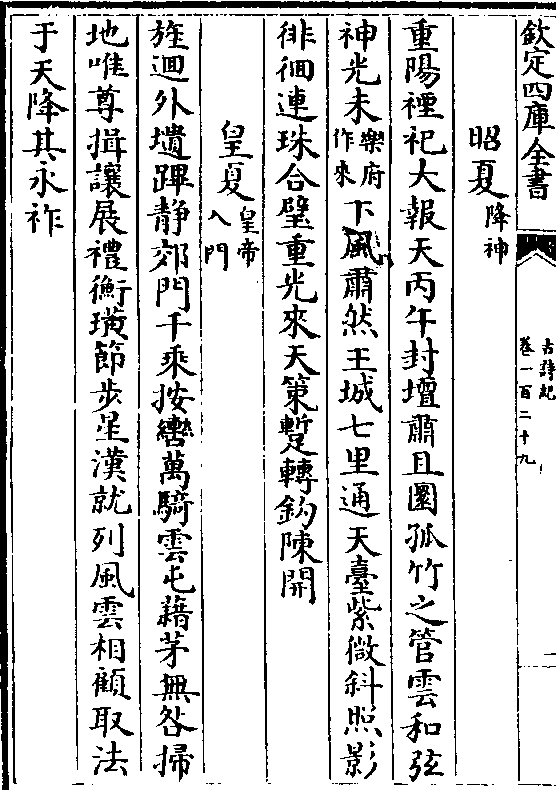 欽定四庫全書
古詩紀
卷一百二十九
昭夏降神
重陽禋祀大報天丙午封壇肅且圜孤竹之管雲和弦
神光未樂府作來下風肅然王城七里通天臺紫微斜照影
徘徊連珠合璧重光來天策蹔轉鈎陳開
皇夏皇帝入門
旌迴外壝蹕靜郊門千乘按轡萬騎雲屯藉茅無咎掃
地唯尊揖讓展禮衡璜節步星漢就列風雲相顧取法
于天降其永祚